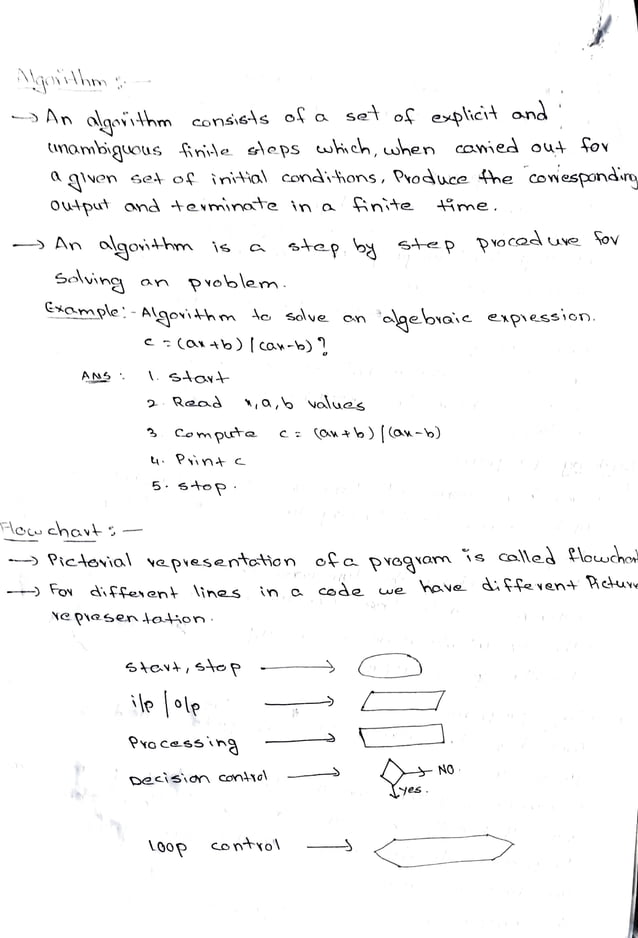 Algorithm :-
→ An algorithm consists of a set of explicit and
unambiguous finite steps which, when carried out for
a given set of initial conditions, Produce the corresponding
output and terminate in a finite time.
→ An algorithm is a step by step procedure for
solving an problem.
Example:- Algorithm to solve an algebraic expression.
c = (ax+b) / (ax-b)?
ANS : 1. start
2. Read x, a, b values
3. Compute c = (ax+b) / (ax-b)
4. Print c
5. stop.
Flow chart :-
→ Pictorial representation of a program is called flowchart
→ For different lines in a code we have different Picture
representation.
start, stop →
i/p / o/p →
Processing →
Decision control → NO.
yes.
loop control →